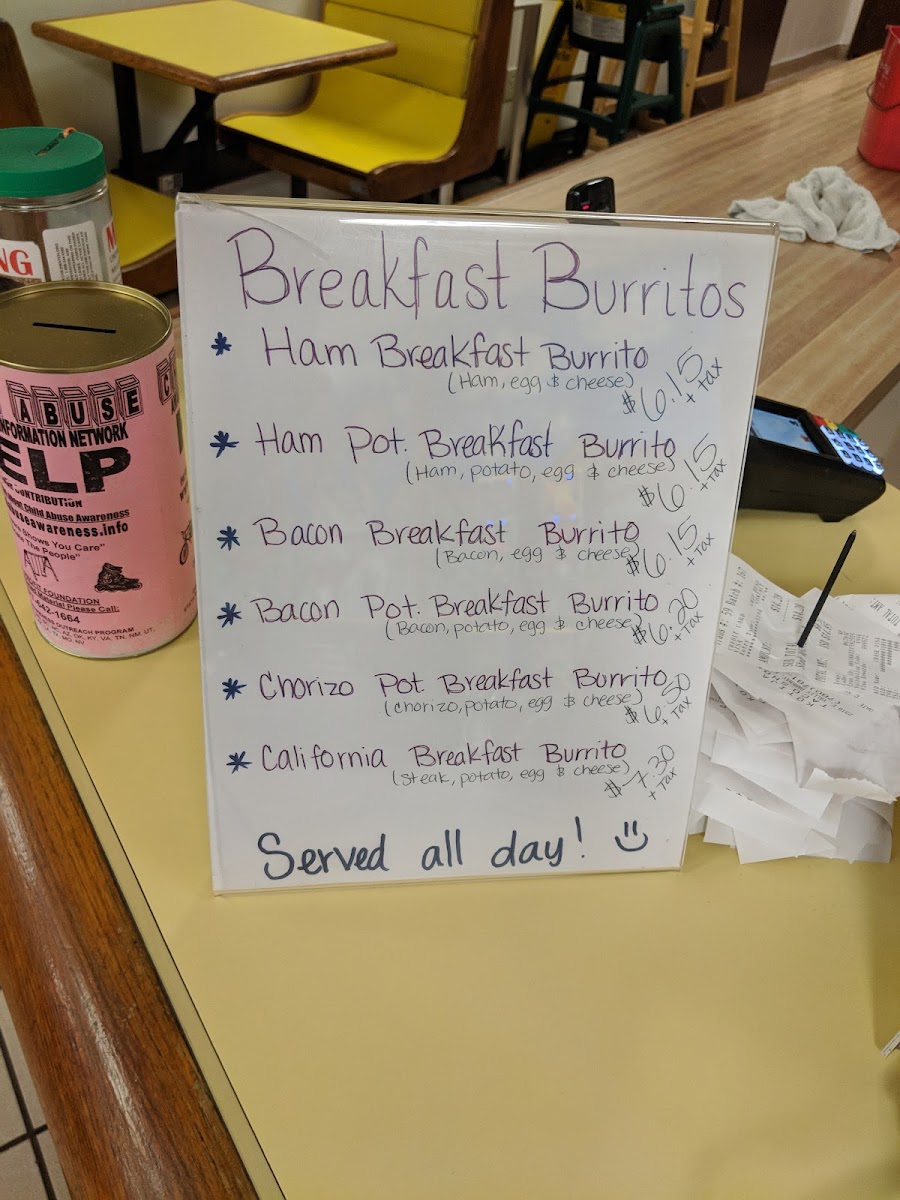 Breakfast Burritos
* Ham Breakfast Burrito
(Ham, egg & cheese) $6.15 + tax
* Ham Pot. Breakfast Burrito
(Ham, potato, egg & cheese) $6.15 + Tax
* Bacon Breakfast Burrito
(Bacon, egg & cheese) $6.15 + Tax
* Bacon Pot. Breakfast Burrito
(Bacon, potato, egg & cheese) $6.20 + Tax
* Chorizo Pot. Breakfast Burrito
(Chorizo, potato, egg & cheese) $6.50 + Tax
* California Breakfast Burrito
(Steak, potato, egg & cheese) $7.30 + Tax
Served all day!
NG
ABUSE
INFORMATION NETWORK
ELP
CONTRIBUTION
Child Abuse Awareness
useawareness.info
Shows You Care"
The People"
FOUNDATION
Material Please Call:
-642-1664
OUTREACH PROGRAM